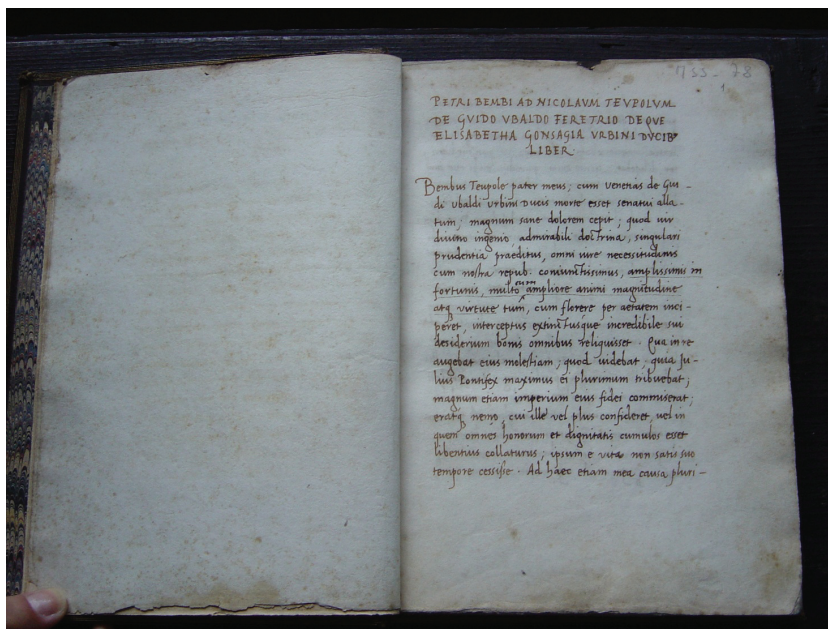 1733-78
1
PETRI BEMBI AD NICOLAVM TEVPOLVM
DE GVIDO VBALDO FERETRIO DEQVE
ELISABETHA GONSAGIA VRBINI DVCIB
LIBER.
Bembus Teupole pater meus; cum venetias de Gui-
di ubaldi urbini Ducis morte esset senatui alla-
tum; magnum sane dolorem cepit; quod vir
divino ingenio, admirabili doctrina, singulari
prudentia praeditus, omni iure necessitudinis
cum nostra repub. coniunctissimus, amplissimis in
fortunis, multo cum ampliore animi magnitudine
atq virtute tum, cum florere per aetatem inci-
peret, interceptus extinctusque incredibile sui
desiderium bonis omnibus reliquisset. Qua in re
augebat eius molestiam; quod videbat, quia Ju-
lius Pontifex maximus ei plurimum tribuebat;
magnum etiam imperium eius fidei commiserat;
eratq nemo, cui ille vel plus confideret, vel in
quem omnes honorum et dignitatis cumulos esset
libentius collaturus; ipsum e vita non satis suo
tempore cessisse. Ad haec etiam mea causa pluri-